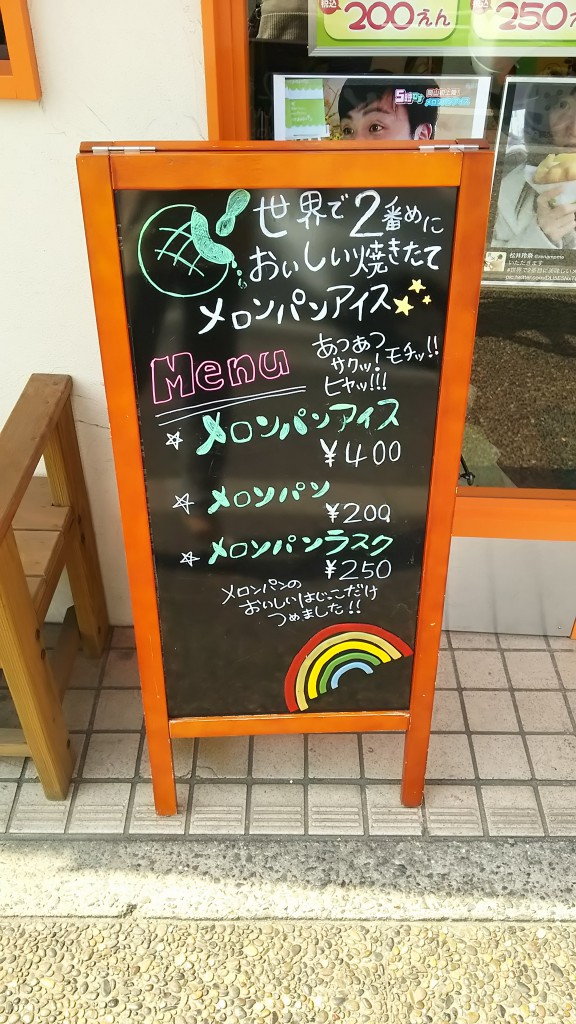 税込
200えん
税込
250
世界で2番めに
おいしい焼きたて
メロンパンアイス
Menu
あつあつ
サクッ!モチッ!!
ヒヤッ!!!
メロンパンアイス
¥400
メロンパン
¥200
メロンパンラスク
¥250
メロンパンの
おいしいはじっこだけ
つめました!!
いただきます